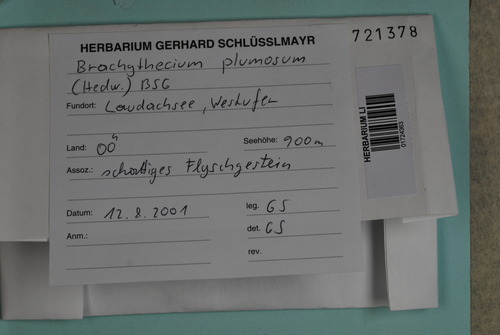 HERBARIUM GERHARD SCHLÜSSLMAYR
721378
Brachythecium plumosum
(Hedw.) BSG
Fundort: Laudachsee, Westufer
Land: OÖ Seehöhe: 900m
Assoz.: schattiges Flyschgestein
Datum: 12.8.2001 leg. GS
Anm.: det. GS
rev.
HERBARIUM LI
01724263